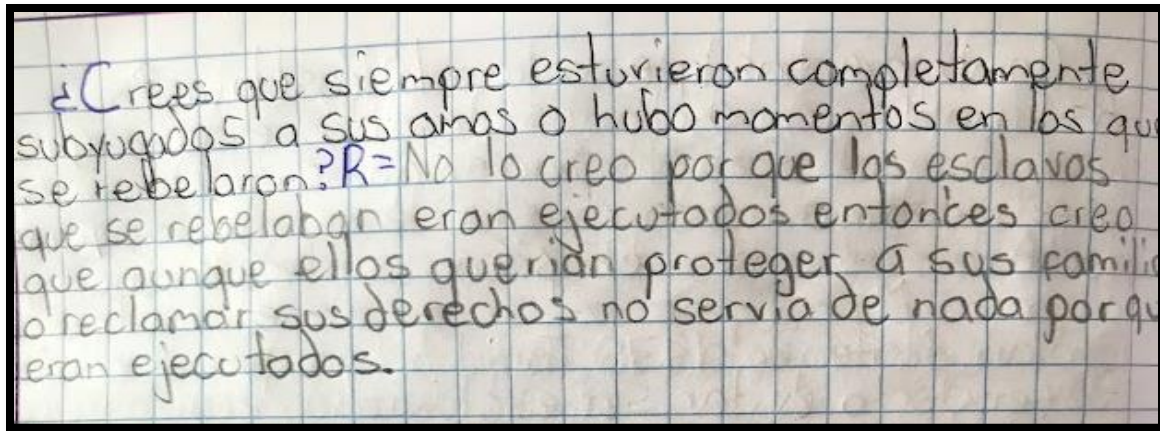 ¿Crees que siempre esturieron completamente
subyugados a sus amos o hubo momentos en los que
se rebelaron? R= No lo creo por que los esclavos
que se rebelaban eran ejecutados entonces creo
que aunque ellos querian proteger a sus familia
o reclamar sus derechos no servia de nada porqu
eran ejecutados.